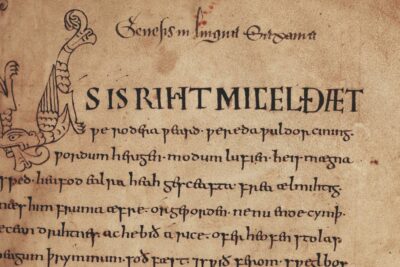 Genesis in lingua Saxania
S IS RIHT MICEL ÐÆT
ƿe rodera ƿeard · ƿereda ƿuldor cining ·
ƿordum herigen · modum lufien · he is mægna
sped · heafod ealra heah gesceafta · frea ælmihtig ·
næs him fruma æfre · or geƿorden · ne nu ende cymþ ·
ecean drihtnes · ac he bið a rice · ofer heofen stolas
eagum þrymmum · soð fæst ·